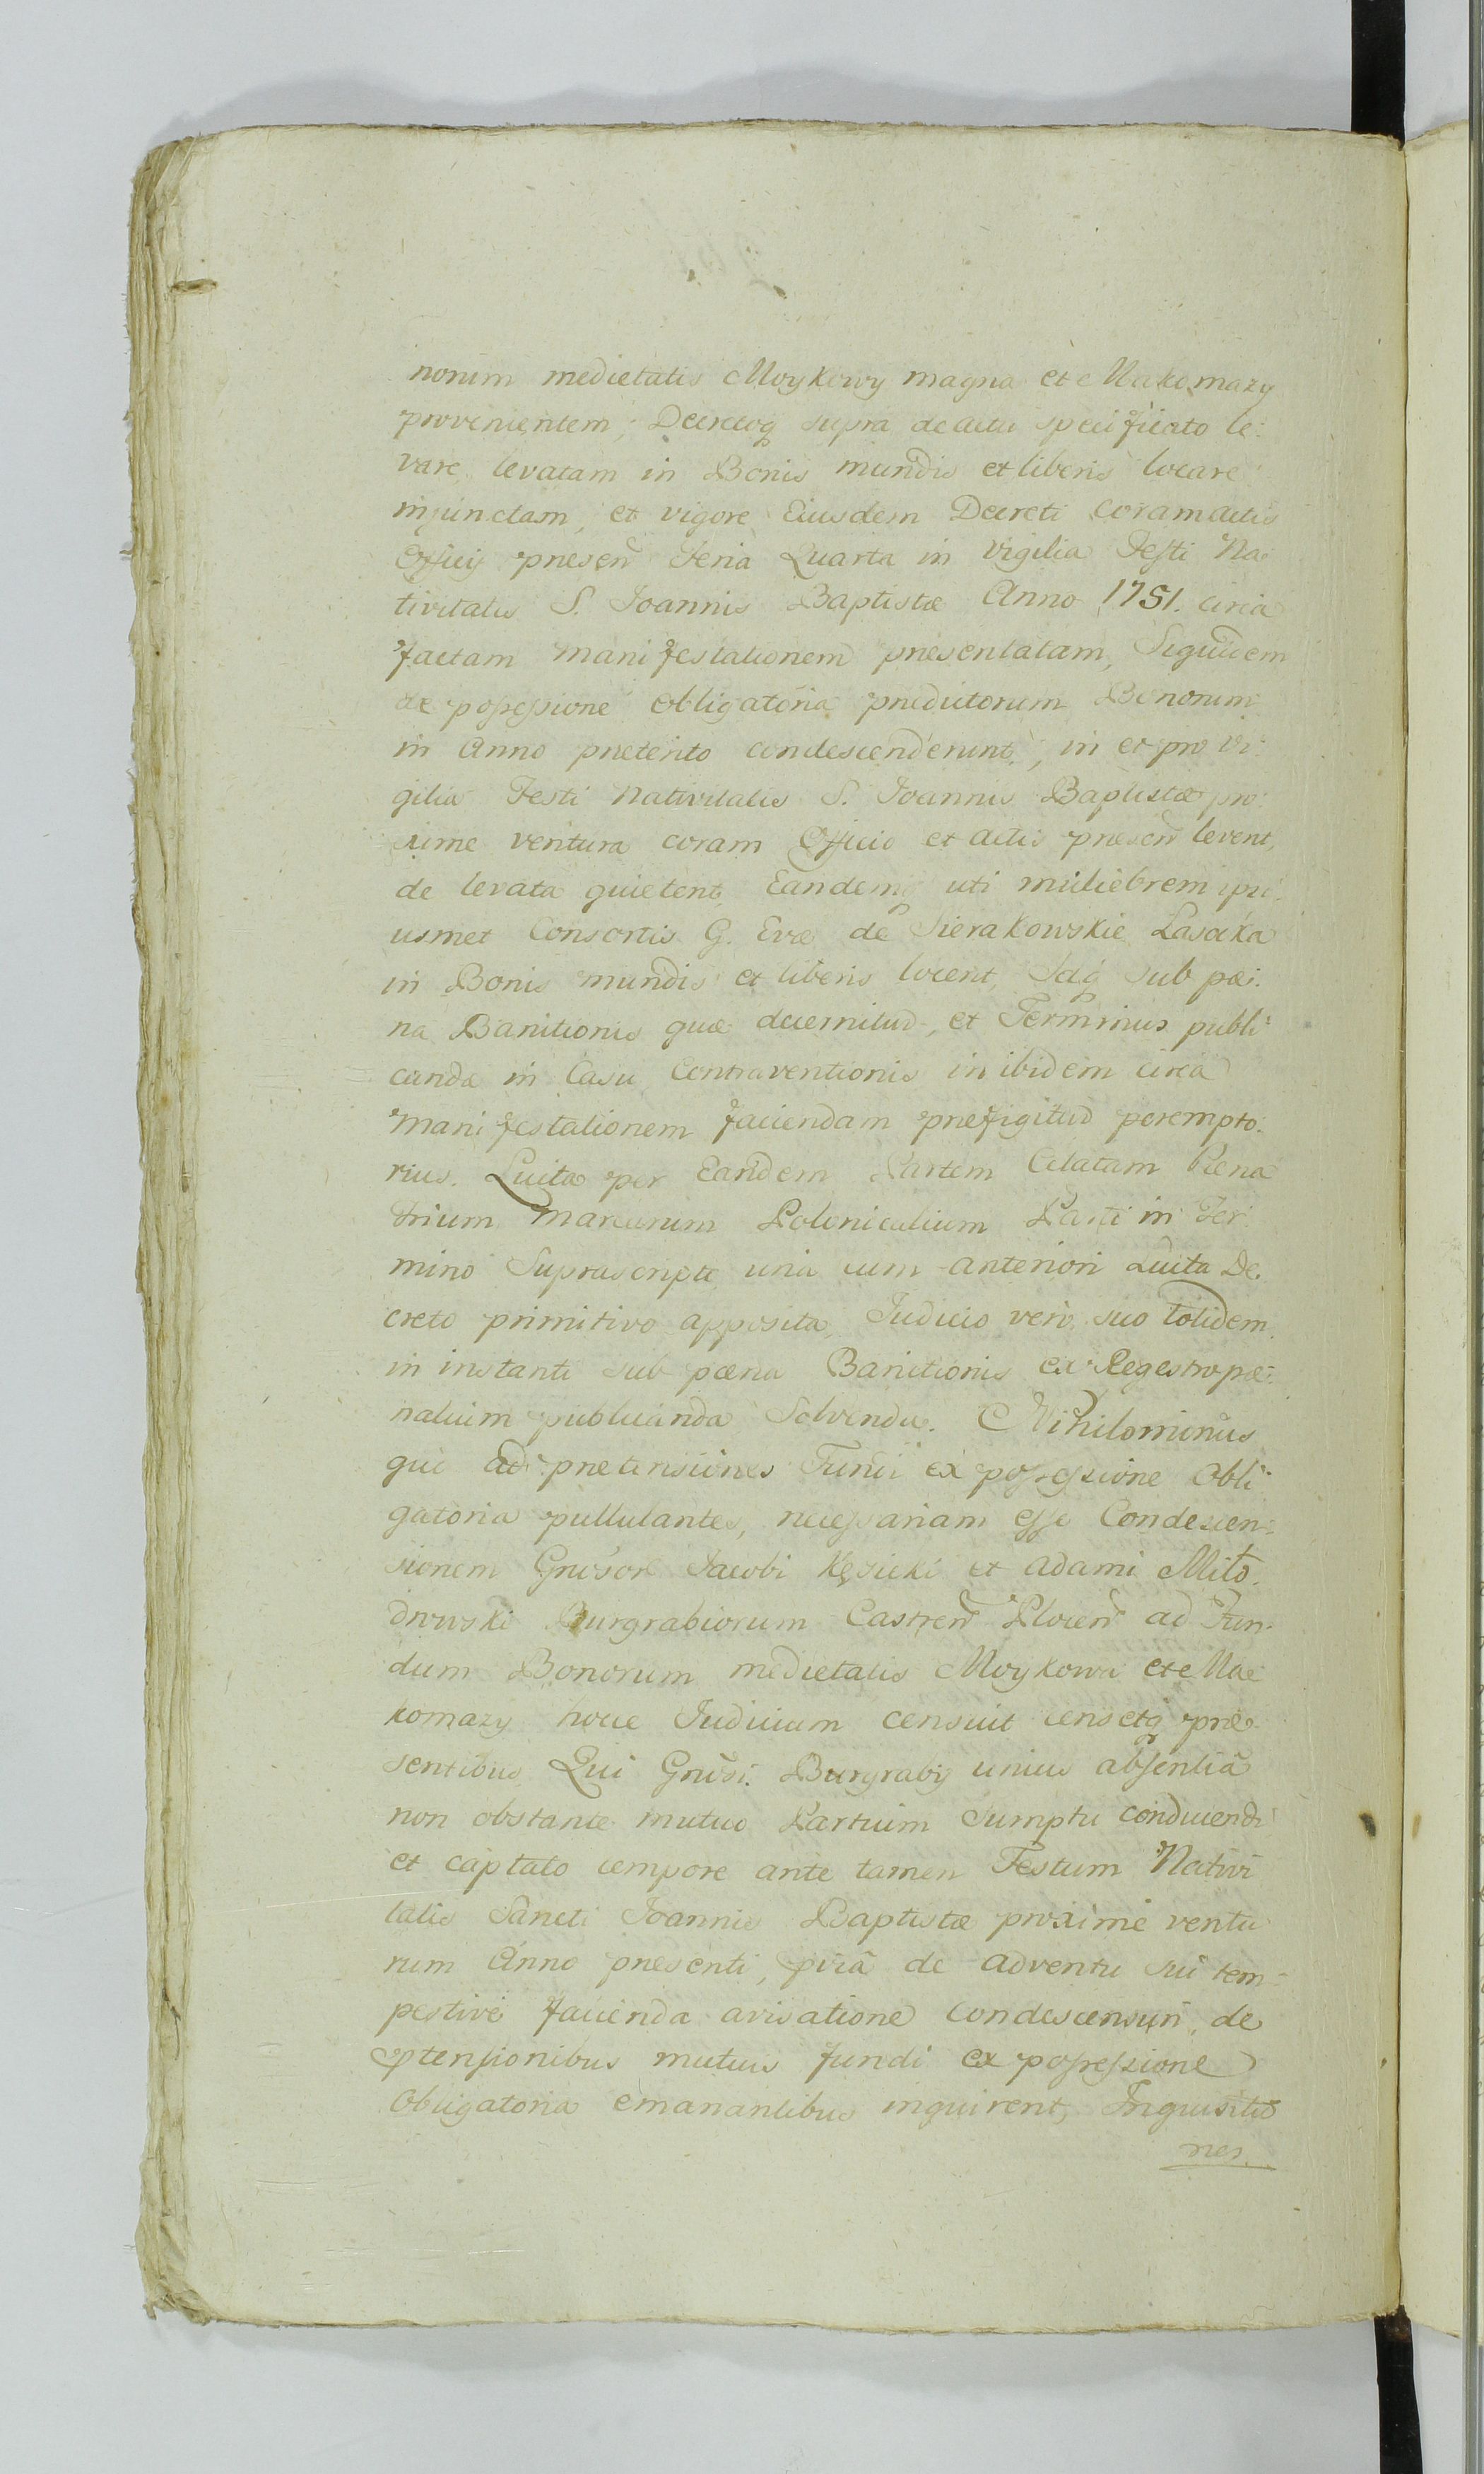 norum medietatis Moykowy magna et Makomazy
provenientem; Decretoq supra de actu specificato le:
vare, levatam in Bonis mundis et liberis locare
injunctam, et vigore Eiusdem Decreti coram actis
Officij presen Feria Quarta in Vigilia Festi Na
tivitatis S. Joannis Baptistæ Anno 1751. circa
factam manifestationem presentatam, Siquidem
de possessione obligatoria predictorum Bonorum
in Anno preterito condescenderunt, in et pro Vi:
gilia Festi Nativitatis S. Joannis Baptistæ pro
xime ventura coram Officio et actis presen levent,
de levata quietent, Eandemq uti muliebrem ipsi
usmet Consortis G. Evæ de Sierakowskie Lasocka
in Bonis mundis et liberis locent, Idq sub pæ:
na Banitionis quæ decernitur, et Terminus publi
canda in Casu Contraventionis in ibidem circa
manifestationem faciendam prefigitur perempto:
rius. Luita per Eandem Partem Citatam Pena
trium marcarum Polonicalium Parti in Ter
mino Suprascripto una cum anteriori Luita De
creto primitivo apposita, Judicio vero suo totidem
in instanti sub pæna Banitionis ex Regestro pæ:
nalium publicanda Solvendu. Nihilominus
quo ad pretensiones Fundi ex possessione Obli
gatoria pullulantes, necessariam esse Condescen:
sionem Gnrosor Jacobi Kęsicki et Adami Miło
drowski Burgrabiorum Castren Plocen ad Fun
dum Bonorum medietatis Moykowa et Ma
komazy hocce Judicium censuit censetq pre
sentibus, Qui Gnrosi Burgrabij unius absentia
non obstante mutuo Partium Sumptu conducendi
et captato tempore ante tamen Festum Nativi
tatis Sancti Joannis Baptistæ proxime ventu
rum Anno presenti, pvia de adventu sui tem:
pestive facienda avisatione condescensuri, de
ptensionibus mutuis fundi ex possessione
Obligatoria emanantibus inquirent, Inquisitio
nes.